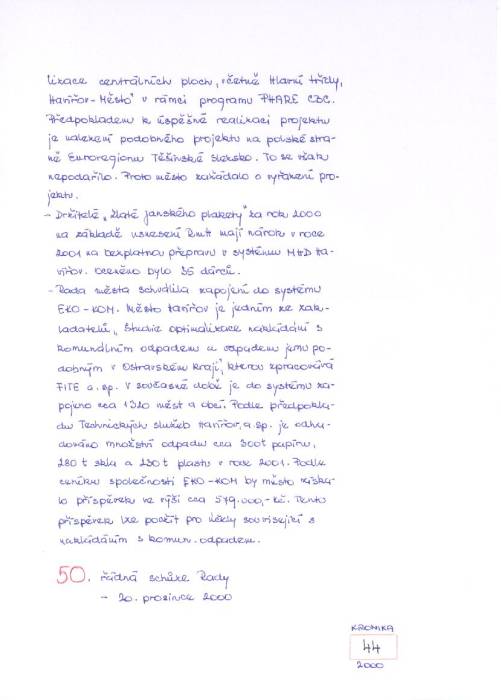 lizace centrálních ploch, včetně Hlavní třídy,
Havířov-Město" v rámci programu PHARE CBC.
Předpokladem k úspěšné realizaci projektu
je nalezení podobného projektu na polské stra-
ně Euroregionu Těšínské Slezsko. To se však
nepodařilo. Proto město zažádalo o vyřazení pro-
jektu.
- Držitelé "Zlaté Janského plakety" za rok 2000
na základě usnesení RMH mají nárok v roce
2001 na bezplatnou přepravu v systému MHD Ha-
vířov. Oceněno bylo 35 dárců.
- Rada města schválila zapojení do systému
EKO-KOM. Město Havířov je jedním ze zak-
ladatelů „Studie optimalizace nakládání s
komunálním odpadem a odpadem jemu po-
dobným v Ostravském kraji", kterou zpracovává
FITE a.sp. V současné době je do systému za-
pojeno cca 1320 měst a obcí. Podle předpokla-
du Technických služeb Havířov, a.sp. je odha-
dováno množství odpadu cca 300t papíru,
280 t skla a 230 t plastu v roce 2001. Podle
ceníku společnosti EKO-KOM by město získa-
lo příspěvek ve výši cca 579.000,-Kč. Tento
příspěvek lze použít pro účely související s
nakládáním s komun. odpadem.
50. řádná schůze Rady
- 20. prosince 2000
KRONIKA
44
2000